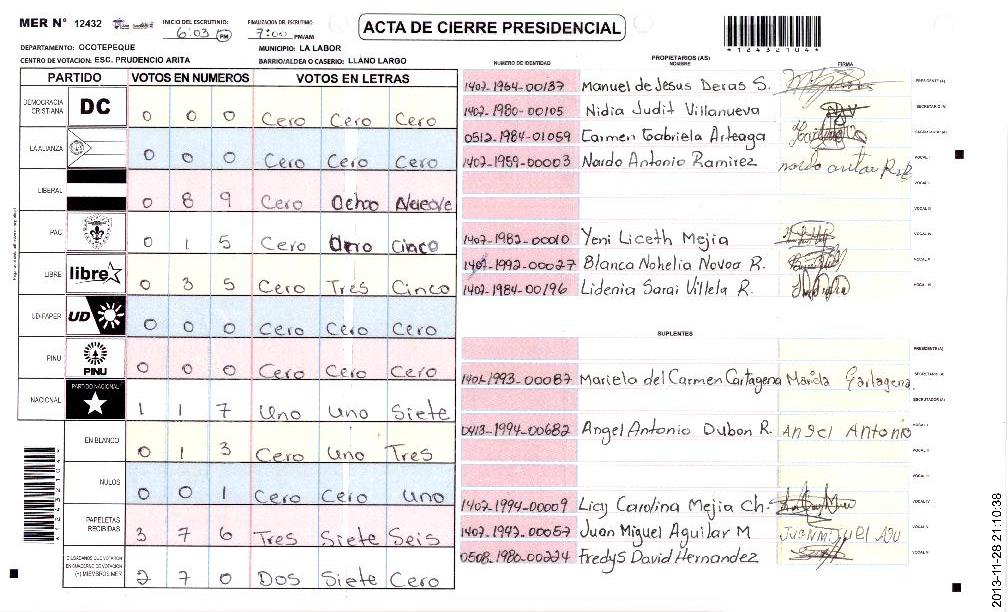 MER N° 12432
INICIO DEL ESCRUTINIO: 6:03 PM
FINALIZACION DEL ESCRUTINIO: 7:00 PM/AM
ACTA DE CIERRE PRESIDENCIAL
*12432104*
DEPARTAMENTO: OCOTEPEQUE
MUNICIPIO: LA LABOR
CENTRO DE VOTACION: ESC. PRUDENCIO ARITA
BARRIO/ALDEA O CASERIO: LLANO LARGO
PARTIDO VOTOS EN NUMEROS VOTOS EN LETRAS
DEMOCRACIA CRISTIANA DC 0 0 0 Cero Cero Cero
LA ALIANZA 0 0 0 Cero Cero Cero
LIBERAL 0 8 9 Cero Ocho Nueve
PAC 0 1 5 Cero Uno Cinco
LIBRE libre 0 3 5 Cero Tres Cinco
UD-FAPER UD 0 0 0 Cero Cero Cero
PINU PINU 0 0 0 Cero Cero Cero
NACIONAL PARTIDO NACIONAL 1 1 7 Uno Uno Siete
EN BLANCO 0 1 3 Cero Uno Tres
NULOS 0 0 1 Cero Cero Uno
PAPELETAS RECIBIDAS 3 7 6 Tres Siete Seis
CIUDADANOS QUE VOTARON EN CUADERNO DE VOTACION (+) MIEMBROS MER 2 7 0 Dos Siete Cero
PROPIETARIOS (AS)
NUMERO DE IDENTIDAD NOMBRE FIRMA
1407-1964-00137 Manuel de Jesus Deras S. PRESIDENTE (A)
1407-1980-00105 Nidia Judit Villanueva SECRETARIO (A)
0512-1984-01059 Carmen Gabriela Arteaga ESCRUTADOR (A)
1407-1959-00003 Nardo Antonio Ramirez VOCAL I
VOCAL II
VOCAL III
1407-1982-00010 Yeni Liceth Mejia VOCAL IV
1407-1992-00027 Blanca Nohelia Novoa R. VOCAL V
1407-1984-00196 Lidenia Sarai Villela R. VOCAL VI
SUPLENTES
PRESIDENTE (A)
1401-1993-00087 Mariela del Carmen Cartagena SECRETARIO (A)
ESCRUTADOR (A)
0413-1994-00682 Angel Antonio Dubon R. Angel Antonio VOCAL I
VOCAL II
VOCAL III
1407-1994-00009 Licy Carolina Mejia Ch. VOCAL IV
1407-1947-00057 Juan Miguel Aguilar M VOCAL V
0508-1986-00224 Fredys David Hernandez VOCAL VI
2013-11-28 21:10:38